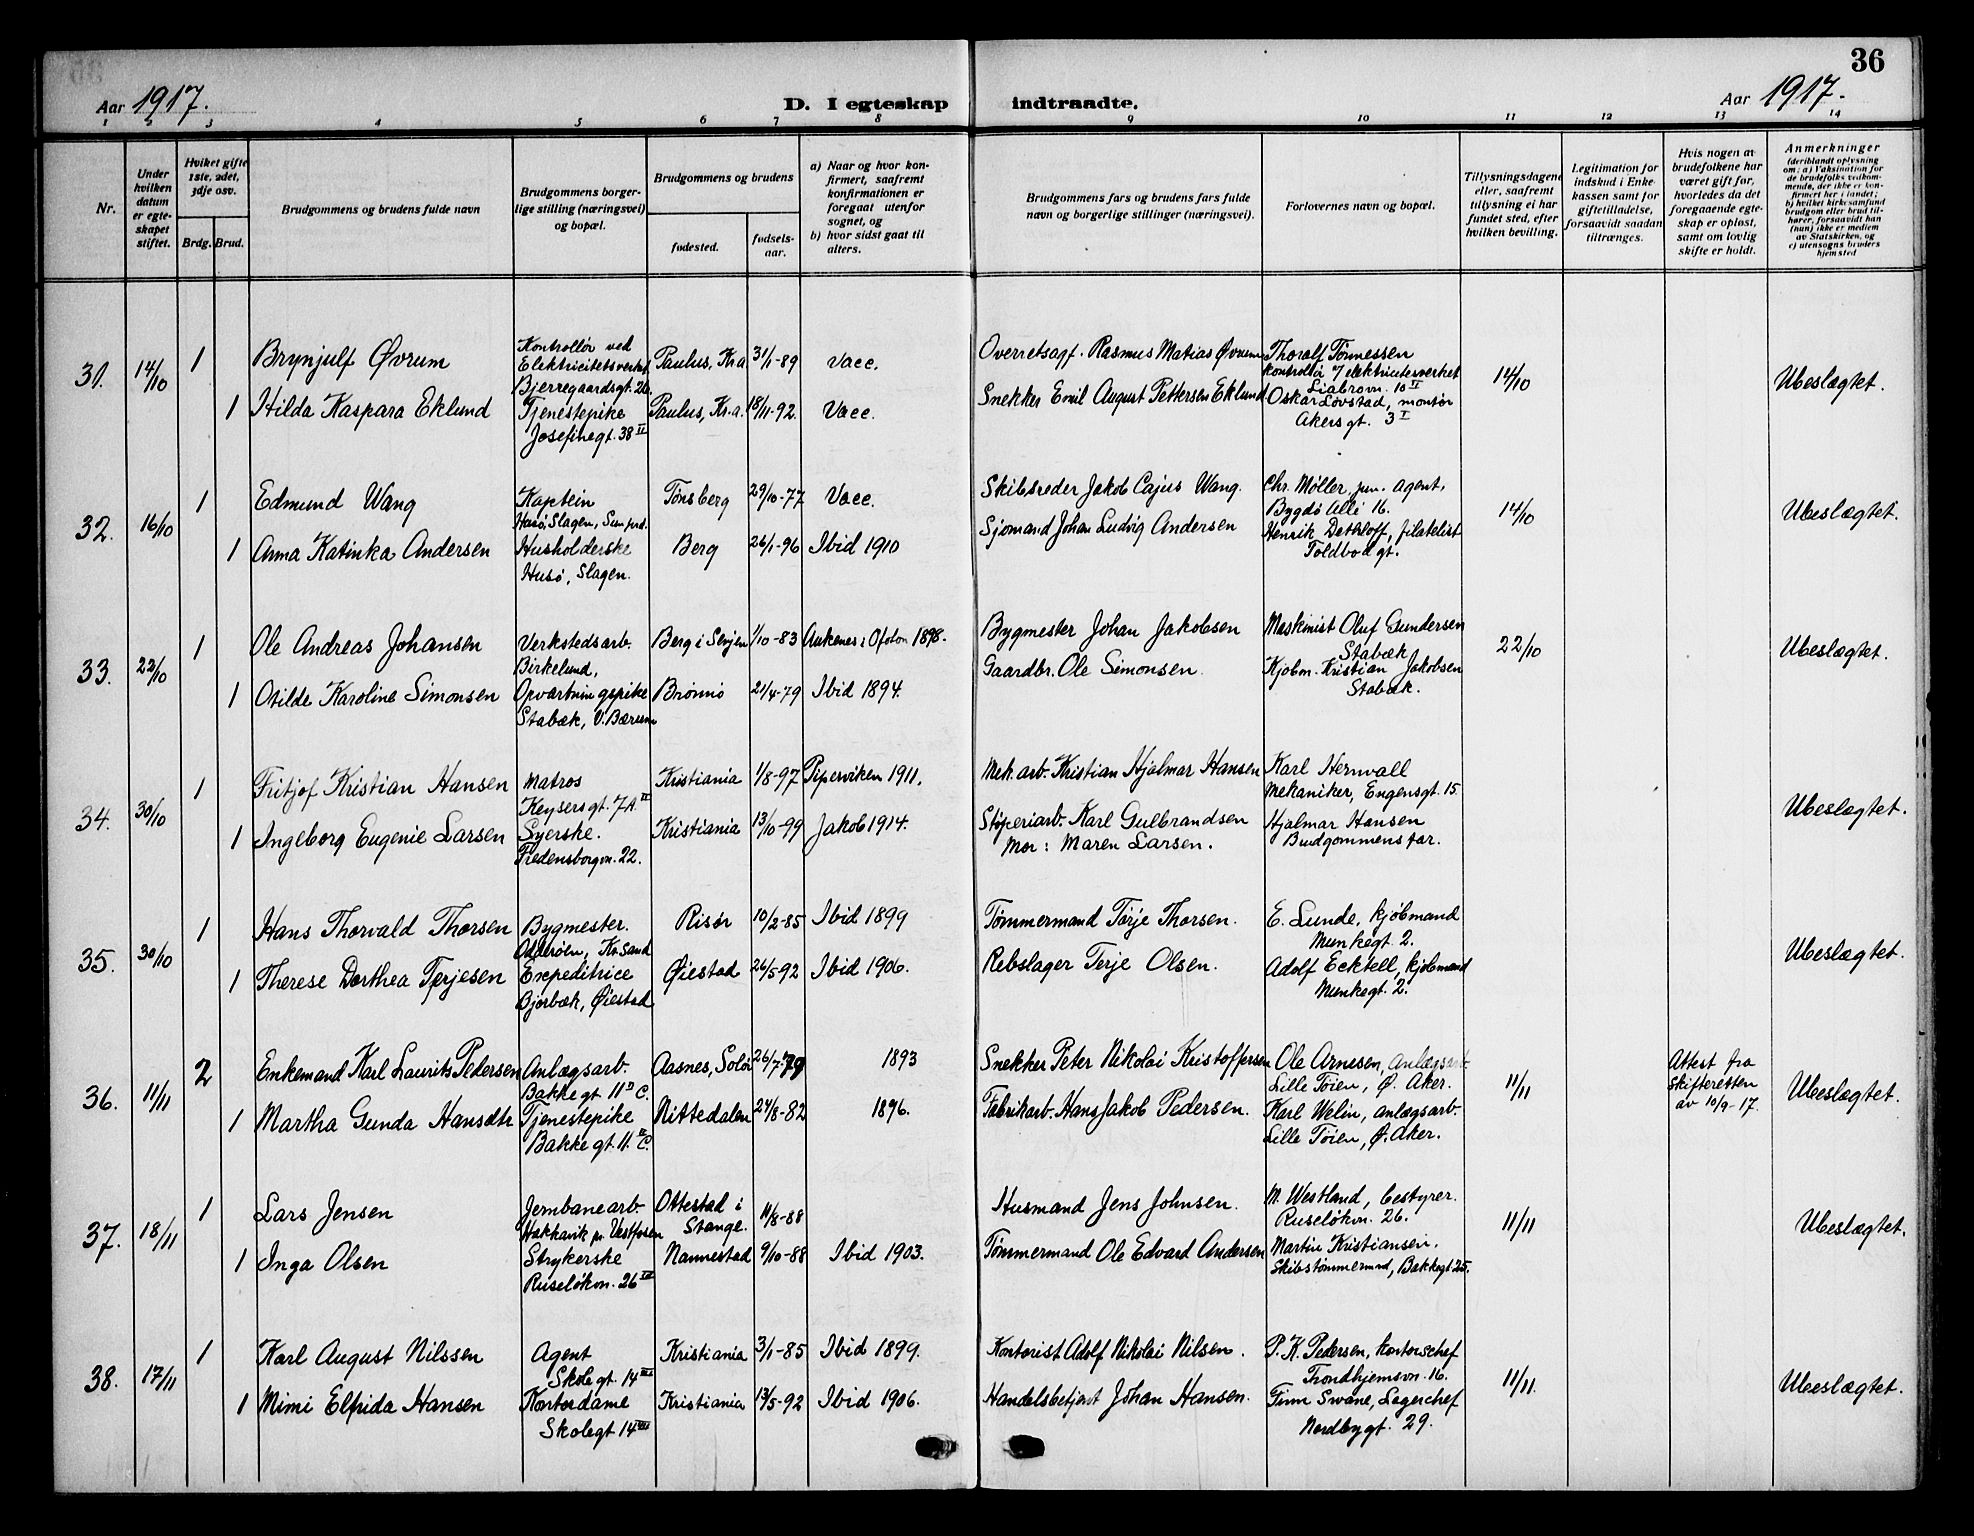 36
Aar 1917.
D. I egteskap indtraadte.
Aar 1917.
1 2 3 4 5 6 7 8 9 10 11 12 13 14
Nr.
Under hvilken datum er egteskapet stiftet.
Hvilket gifte 1ste, 2det, 3dje osv.
Brdg. Brud.
Brudgommens og brudens fulde navn
Brudgommens borgerlige stilling (næringsvei) og bopæl.
Brudgommens og brudens
fødested.
fødselsaar.
a) Naar og hvor konfirmert, saafremt konfirmationen er foregaat utenfor sognet, og
b) hvor sidst gaat til alters.
Brudgommens fars og brudens fars fulde navn og borgerlige stillinger (næringsvei).
Forlovernes navn og bopæl.
Tillysningsdagene eller, saafremt tillysning ei har fundet sted, efter hvilken bevilling.
Legitimation for indskud i Enkekassen samt for giftetilladelse, forsaavidt saadan tiltrænges.
Hvis nogen av brudefolkene har været gift før, hvorledes da det foregaaende egteskap er opløst, samt om lovlig skifte er holdt.
Anmerkninger
(deriblandt oplysning om: a) Vaksination for de brudefolks vedkommende, der ikke er konfirmert her i landet; b) hvilket kirkesamfund brudgom eller brud tilhører, forsaavidt han (hun) ikke er medlem av Statskirken, og c) utensogns bruders hjemsted
31. 14/10 1 Brynjulf Øvrum
Kontrollør ved Elektricitetsverket Bjerregaardsgt. 20.
Paulus, Kr.a. 31/1-89 Vacc.
Overretssagf. Rasmus Matias Øvrum
Thoralf Tønnessen
kontrollør v/ elektricitetsverket
Liabrovn. 10 II
14/10
Ubeslægtet.
1 Hilda Kaspara Eklund
Tjenestepike
Josefinegt. 38 II
Paulus, Kr.a. 18/11-92. Vacc.
Snekker Emil August Pettersen Eklund
Oskar Løvstad, montør
Akersgt. 3 I
32. 16/10 1 Edmund Wang
Kaptein
Husø, Slagen, Sem prd.
Tønsberg 29/10-77 Vacc.
Skibsreder Jakob Cajus Wang.
Chr. Møller, jun. agent,
Bygdø Allé 16.
14/10
Ubeslægtet.
1 Anna Katinka Andersen
Husholderske
Husø, Slagen.
Berg 26/1-96 Ibid 1910
Sjømand Johan Ludvig Andersen
Henrik Dethloff, filatelist
Toldbodgt.
33. 22/10 1 Ole Andreas Johansen
Verkstedsarb.
Birkelund,
Berg i Senjen 1/10-83 Ankenes i Ofoten 1898.
Bygmester Johan Jakobsen
Maskinist Oluf Gundersen
Stabæk
22/10
Ubeslægtet.
1 Otilde Karoline Simonsen
Opvartningspike
Stabæk, V. Bærum
Brønnø 21/4-79 Ibid 1894.
Gaardbr. Ole Simonsen.
Kjøbm. Kristian Jakobsen
Stabæk.
34. 30/10 1 Fritjof Kristian Hansen
Matros
Keysersgt. 7A II
Kristiania 1/8-97 Piperviken 1911.
Mek. arb. Kristian Hjalmar Hansen
Karl Hernvall
Mekaniker, Eugensgt. 15.
Ubeslægtet.
1 Ingeborg Eugenie Larsen
Syerske.
Fredensborgvn. 22.
Kristiania 13/10-99 Jakob 1914.
Støperiarb. Karl Gulbrandsen
Mor: Maren Larsen.
Hjalmar Hansen
Brudgommens far.
35. 30/10 1 Hans Thorvald Thorsen
Bygmester.
Odderøen, Kr.Sand
Risør 10/2-85 Ibid 1899
Tømmermand Tørje Thorsen.
E. Lunde, kjøbmand
Munkegt. 2.
Ubeslægtet.
1 Therese Dorthea Terjesen
Expeditrice
Bjorbæk, Øiestad
Øiestad 26/5-92 Ibid 1906.
Rebslager Terje Olsen.
Adolf Ecktell, kjøbmand
Munkegt. 2.
36. 11/11 2 Enkemand Karl Laurits Pedersen
Anlægsarb.
Bakkegt 11 C.
Aasnes, Solør 26/7-79 1893
Snekker Peter Nikolai Kristoffersen
Ole Arnesen, Anlægsarb.
Lille Tøien, Ø. Aker.
11/11
Attest fra skifteretten av 10/9-17.
Ubeslægtet.
1 Martha Gunda Hansdtr
Tjenestepike
Bakkegt. 11 C.
Nittedalen 24/8-82 1896.
Fabrikarb. Hans Jakob Pedersen.
Karl Welin, anlægsarb.
Lille Tøien, Ø. Aker.
37. 18/11 1 Lars Jensen
Jernbanearb.
Hakkavik pr. Vestfossen
Ottestad i Stange. 11/8-88
Husmand Jens Johnsen.
M. Westland, bestyrer.
Ruseløkvn. 26.
11/11
Ubeslægtet.
1 Inga Olsen
Strykerske
Ruseløkvn. 26 III
Nannestad 9/10-88 Ibid 1903.
Tømmermand Ole Edvard Andersen
Martin Kristiansen,
Skibstømmermd, Bakkegt 25.
38. 17/11 1 Karl August Nilssen
Agent
Skolegt 14 III
Kristiania 3/1-85 Ibid 1899.
Kontorist Adolf Nikolai Nilsen.
P. K. Pedersen, kontorchef
Trondhjemsvn. 16.
11/11.
Ubeslægtet.
1 Mimi Elfrida Hansen
Kontordame
Skolegt 14 III
Kristiania 13/5-92 Ibid 1906.
Handelsbetjent Johan Hansen.
Finn Svane, Lagerchef
Nordbygt. 29.